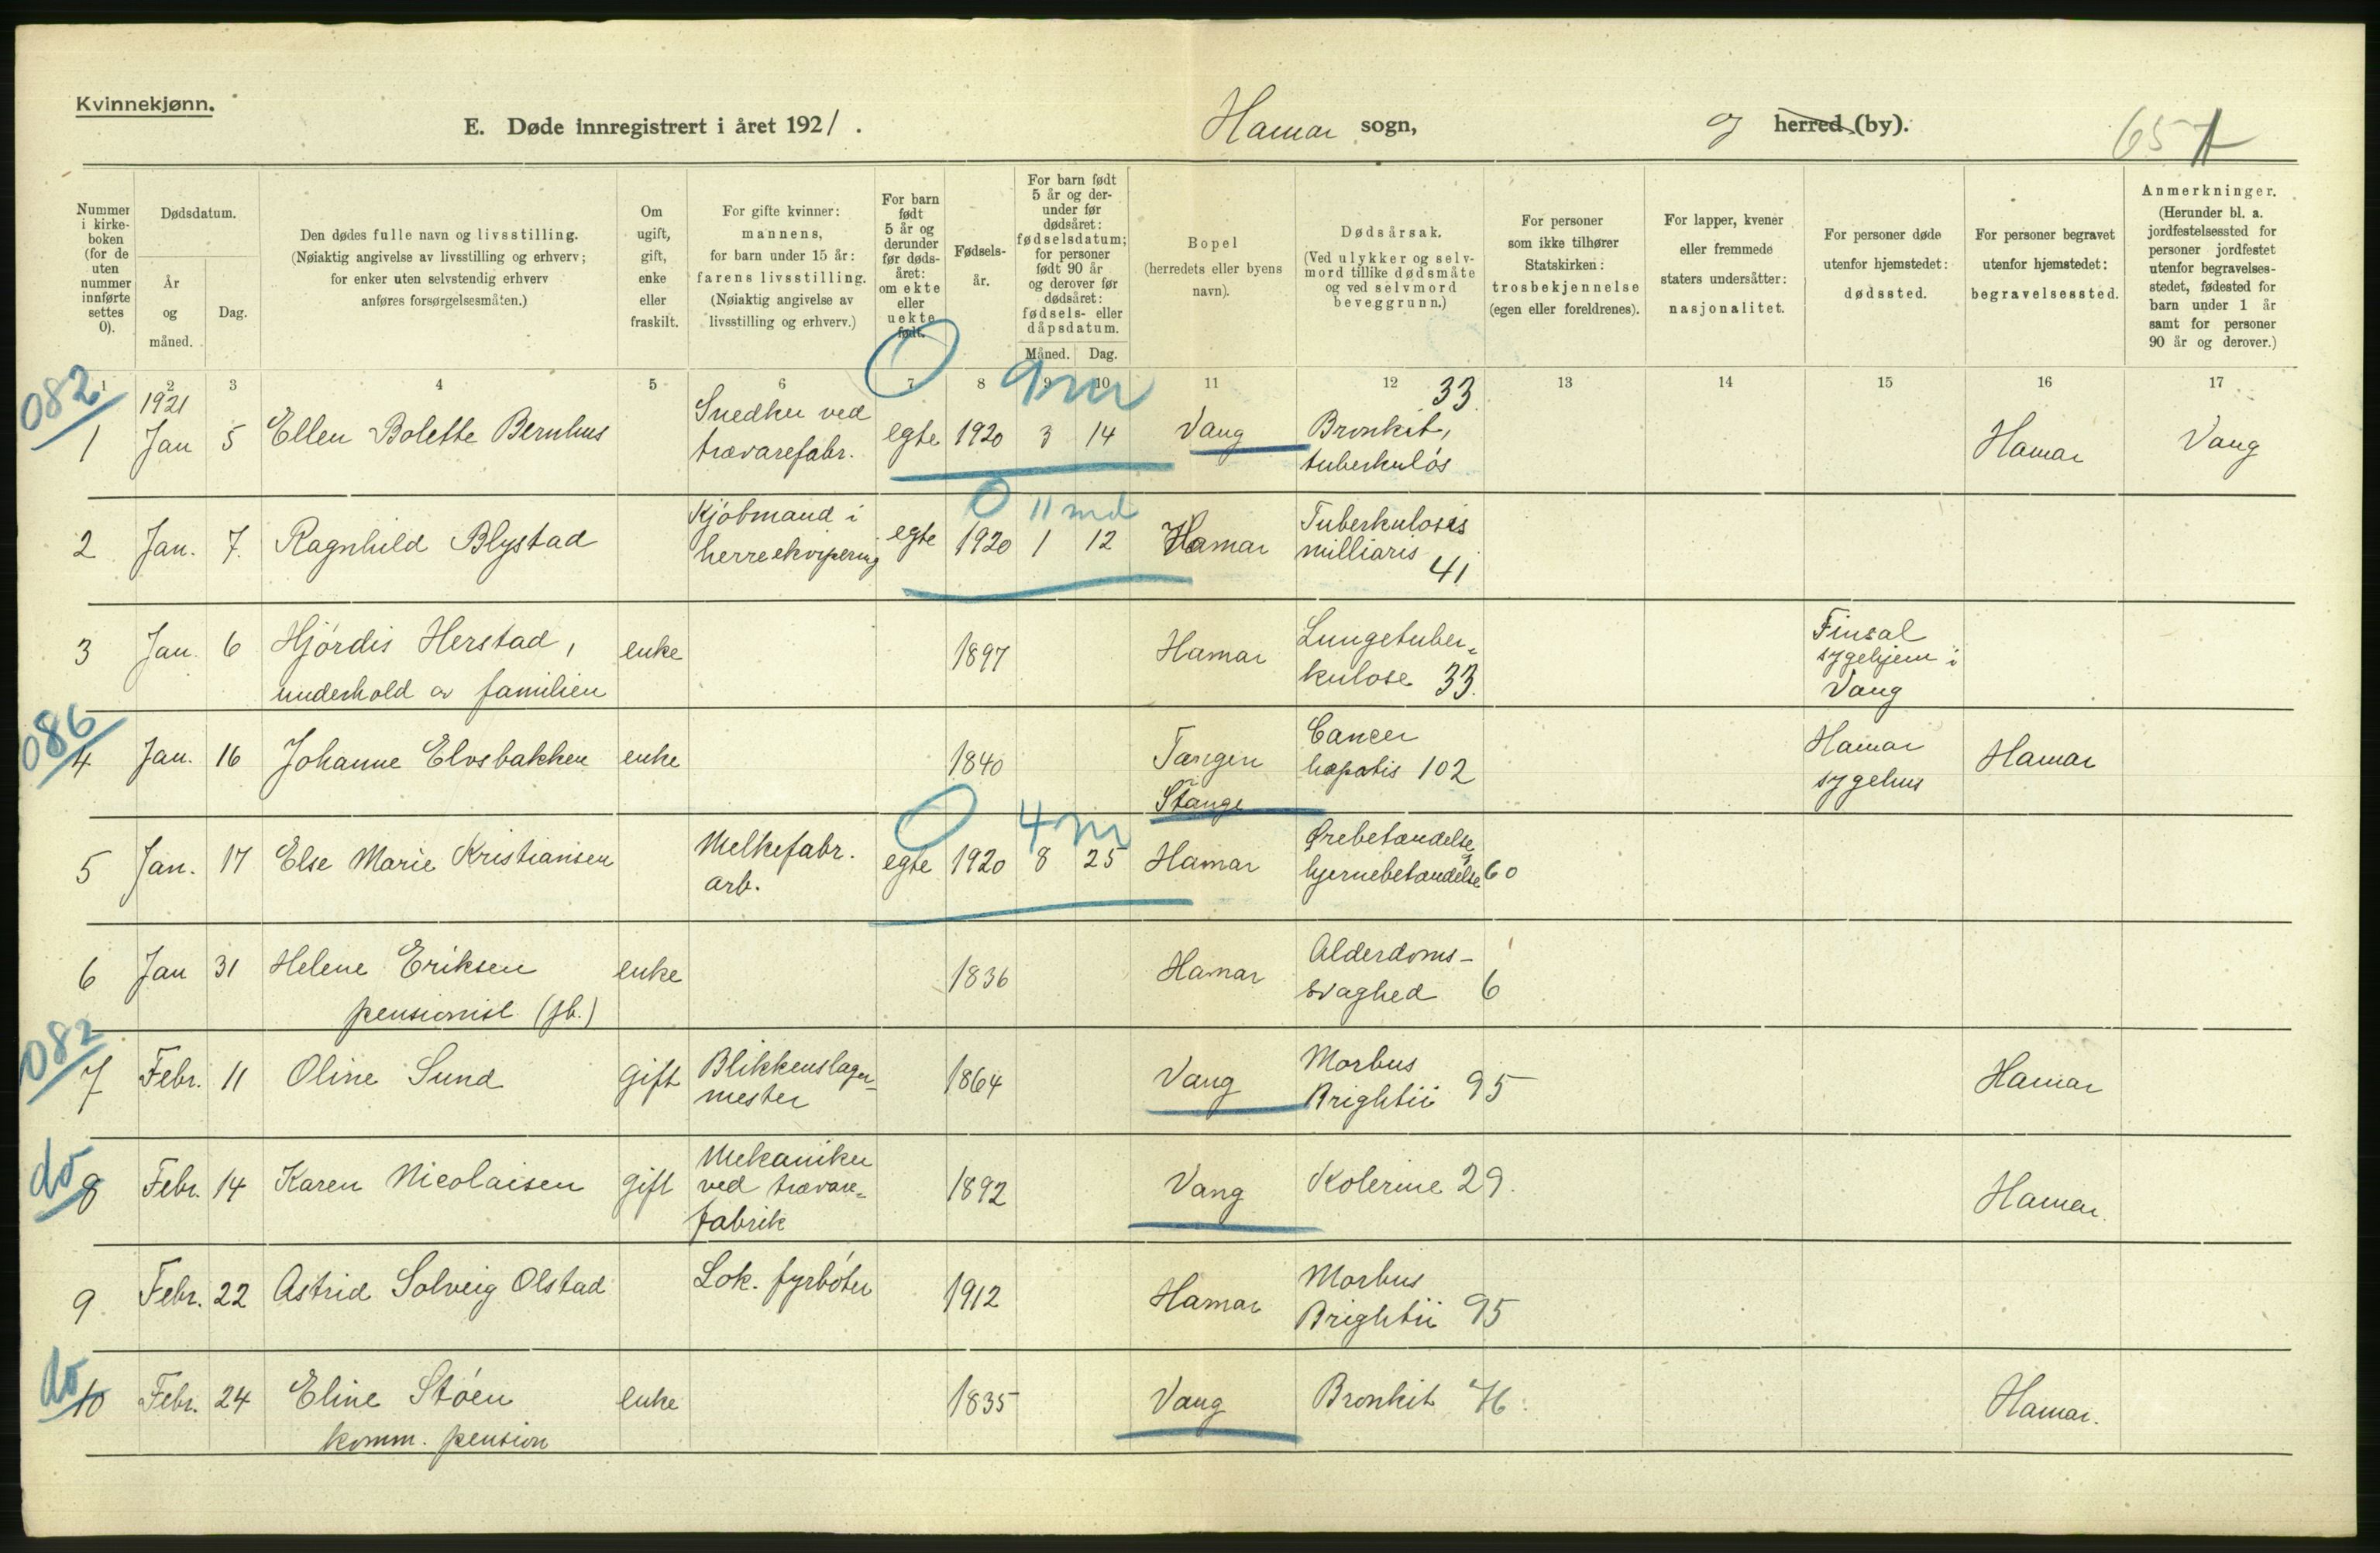 Kvinnekjønn.
E. Døde innregistrert i året 1921.
Hamar sogn,
og herred (by).
65
Nummer i kirke-boken (for de uten nummer innførte settes 0).
Dødsdatum.
År og måned.
Dag.
Den dødes fulle navn og livsstilling.
(Nøiaktig angivelse av livsstilling og erhverv;
for enker uten selvstendig erhverv
anføres forsørgelsesmåten.)
Om
ugift,
gift,
enke
eller
fraskilt.
For gifte kvinner:
mannens,
for barn under 15 år:
farens livsstilling.
(Nøiaktig angivelse av
livsstilling og erhverv.)
For barn
født
5 år og
derunder
før døds-
året:
om ekte
eller
uekte
født.
Fødsels-
år.
For barn født
5 år og der-
under før
dødsåret:
fødselsdatum;
for personer
født 90 år
og derover før
dødsåret:
fødsels- eller
dåpsdatum.
Måned. Dag.
Bopel
(herredets eller byens
navn).
Dødsårsak.
(Ved ulykker og selv-
mord tillike dødsmåte
og ved selvmord
beveggrunn.)
For personer
som ikke tilhører
Statskirken:
trosbekjennelse
(egen eller foreldrenes).
For lapper, kvener
eller fremmede
staters undersåtter:
nasjonalitet.
For personer døde
utenfor hjemstedet:
dødssted.
For personer begravet
utenfor hjemstedet:
begravelsessted.
Anmerkninger.
(Herunder bl. a.
jordfestelsessted for
personer jordfestet
utenfor begravelses-
stedet, fødested for
barn under 1 år
samt for personer
90 år og derover.)
1 2 3 4 5 6 7 8 9 10 11 12 13 14 15 16 17
082
1921
0 9m
33
1 Jan 5 Ellen Bolette Bernhus Snedker ved trævarefabr. egte 1920 3 14 Vang Bronkit, tuberkuløs Hamar Vang
0 11 md
2 Jan. 7. Ragnhild Blystad Kjøbmand i herreekvipering egte 1920 1 12 Hamar Tuberkulosis milliaris 41
3 Jan. 6 Hjørdis Herstad, enke 1897 Hamar Lungetuber- Finsal sygehjem i Vang
underhold av familien kulose 33.
086
4 Jan. 16 Johanne Elvsbakken enke 1840 Tangen Stange Cancer hepatis 102 Hamar sygehus Hamar
0 4m
5 Jan. 17 Else Marie Kristiansen Melkefabr. arb. egte 1920 8 25 Hamar Ørebetændelse, hjernebetændelse 60
6 Jan 31 Helene Eriksen enke 1836 Hamar Alderdoms-
pensionist (jb.) svaghed 6
082
7 Febr. 11 Oline Sund gift Blikkenslager- mester 1864 Vang Morbus Brightii 95 Hamar
do
8 Febr. 14 Karen Nicolaisen gift Mekaniker ved trævare- fabrik 1892 Vang Kolerine 29. Hamar.
9 Febr. 22 Astrid Solveig Olstad Lok. fyrbøter 1912 Hamar Morbus Brightii 95
do
10 Febr. 24 Eline Støen enke 1835 Vang Bronkit 46. Hamar.
komm. pension